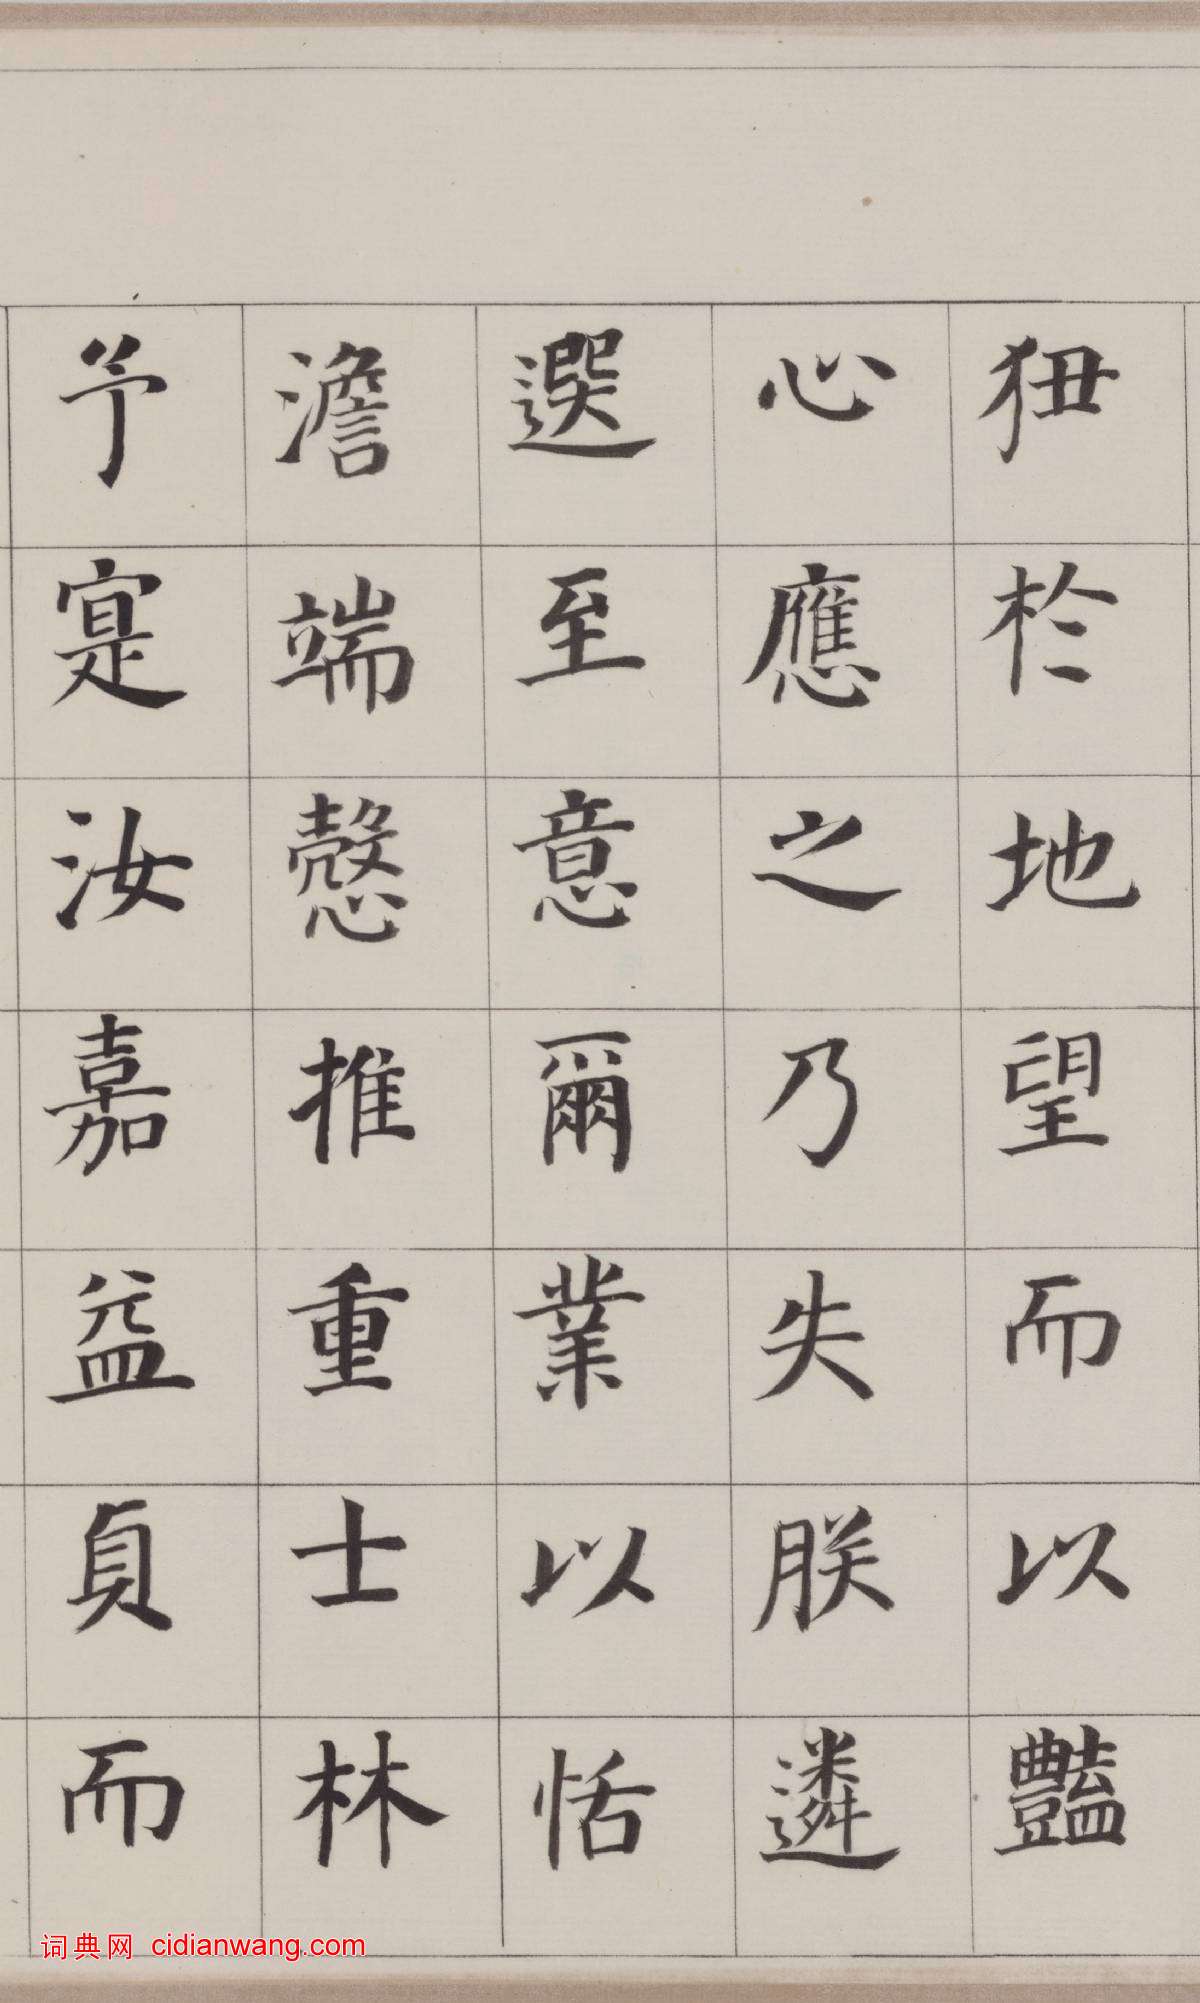 狃於地望而以豔
心應之乃失朕遴
選至意爾業以恬
澹端慤推重士林
予寔汝嘉益貞而
词典网 cidianwang.com